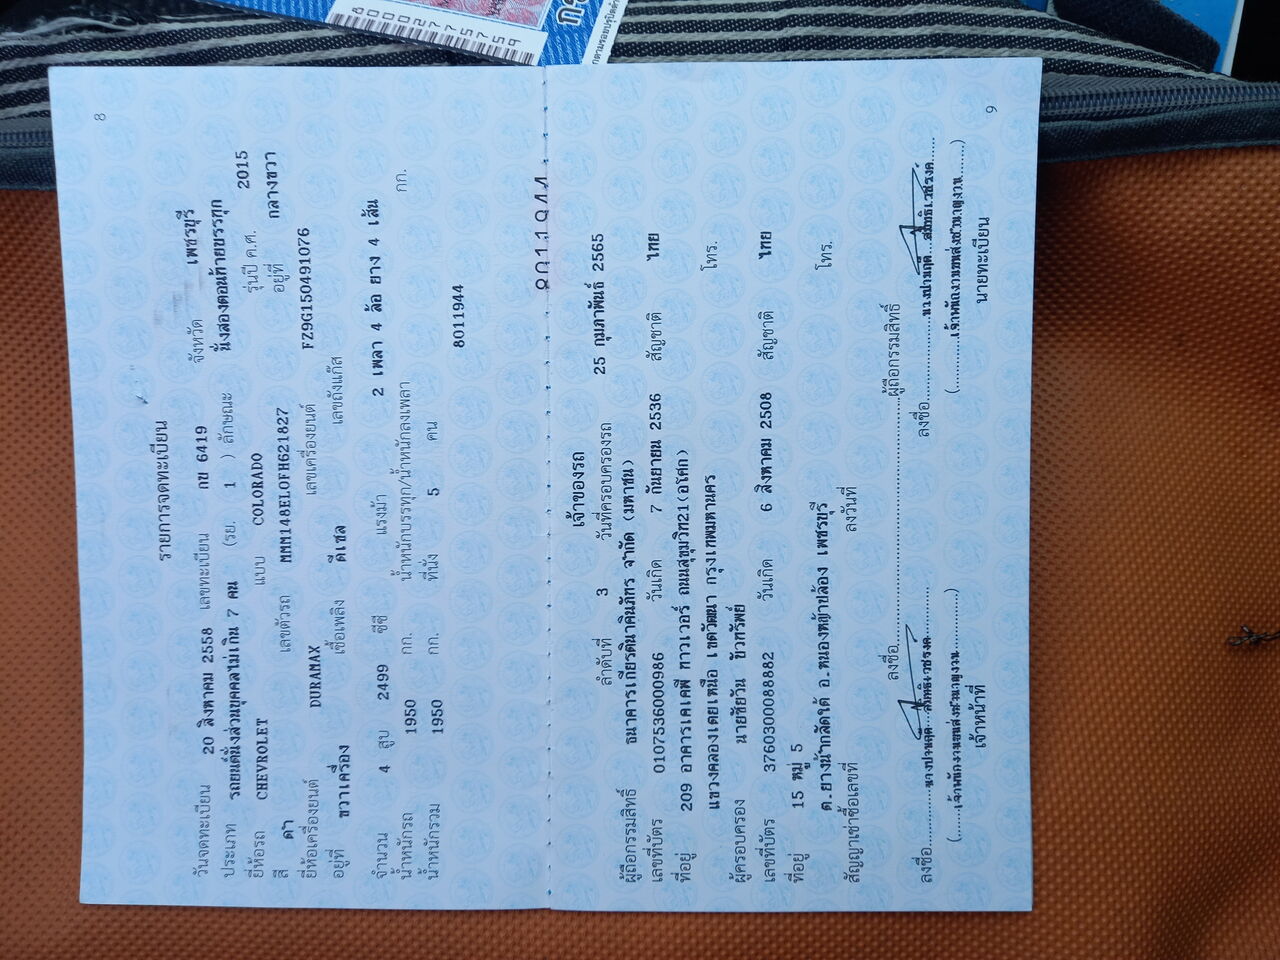 80000277575g
8
รายการจดทะเบียน
วันจดทะเบียน 20 สิงหาคม 2558 เลขทะเบียน กข 6419 จังหวัด เพชรบุรี
ประเภท รถยนต์นั่งส่วนบุคคลไม่เกิน 7 คน (รย. 1 ) ลักษณะ นั่งสองตอนท้ายบรรทุก
ยี่ห้อรถ CHEVROLET แบบ COLORADO รุ่นปี ค.ศ. 2015
สี ดำ เลขตัวรถ MMM148ELOFH621827 อยู่ที่ กลางขวา
ยี่ห้อเครื่องยนต์ DURAMAX เลขเครื่องยนต์ FZ9G150491076
อยู่ที่ ขวาเครื่อง เชื้อเพลิง ดีเซล เลขถังแก๊ส
จำนวน 4 สูบ 2499 ซีซี แรงม้า 2 เพลา 4 ล้อ ยาง 4 เส้น
น้ำหนักรถ 1950 กก. น้ำหนักบรรทุก/น้ำหนักลงเพลา กก.
น้ำหนักรวม 1950 กก. ที่นั่ง 5 คน
8011944
8011944
เจ้าของรถ
ลำดับที่ 3 วันที่ครอบครองรถ 25 กุมภาพันธ์ 2565
ผู้ถือกรรมสิทธิ์ ธนาคารเกียรตินาคินภัทร จำกัด (มหาชน)
เลขที่บัตร 0107536000986 วันเกิด 7 กันยายน 2536 สัญชาติ ไทย
ที่อยู่ 209 อาคารเคเคพี ทาวเวอร์ ถนนสุขุมวิท21(อโศก)
แขวงคลองเตยเหนือ เขตวัฒนา กรุงเทพมหานคร โทร.
ผู้ครอบครอง นายชัยวัน ขัวทรัพย์
เลขที่บัตร 3760300088882 วันเกิด 6 สิงหาคม 2508 สัญชาติ ไทย
ที่อยู่ 15 หมู่ 5
ต.ยางน้ำกลัดใต้ อ.หนองหญ้าปล้อง เพชรบุรี โทร.
สัญญาเช่าซื้อเลขที่ ลงวันที่
ลงชื่อ ผู้ถือกรรมสิทธิ์
ลงชื่อ ลงชื่อ
(เจ้าพนักงานขนส่งชำนาญงาน) (เจ้าพนักงานขนส่งชำนาญงาน)
เจ้าหน้าที่ นายทะเบียน
9